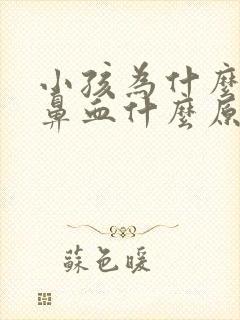 小孩為什麼
鼻血什麼原
蘇色暖